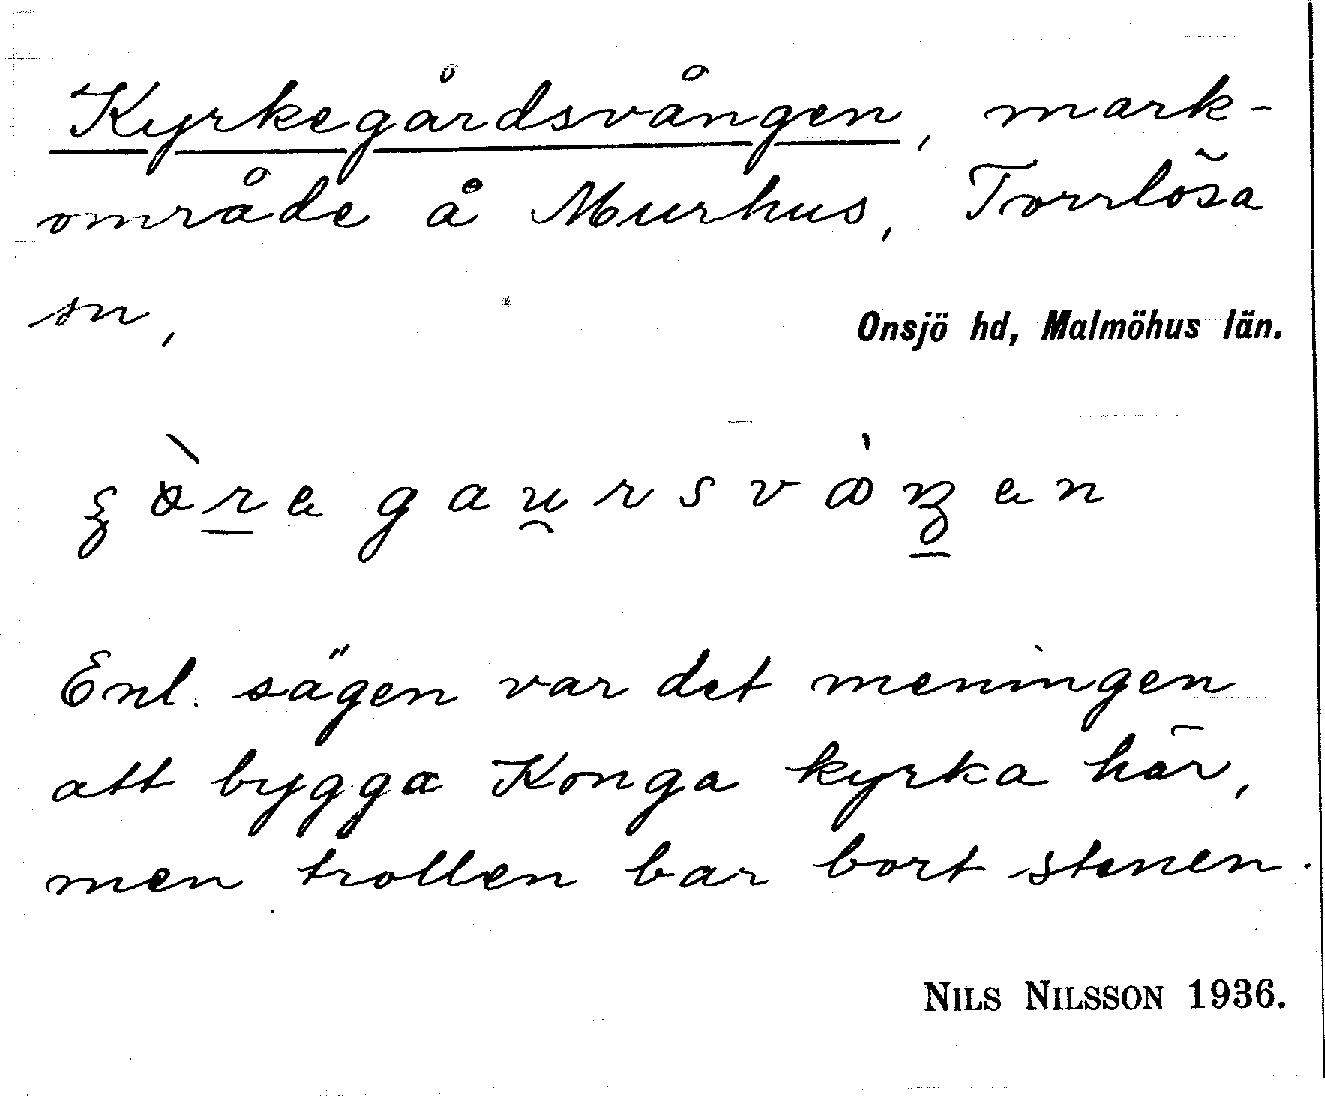 Kyrkegårdsvången, mark-
område å Murhus, Torrlösa
sn,
Onsjö hd, Malmöhus län.
gaursvaŋen
Enl. sägen var det meningen
att bygga Konga kyrka här,
men trollen bar bort stenen.
NILS NILSSON 1936.